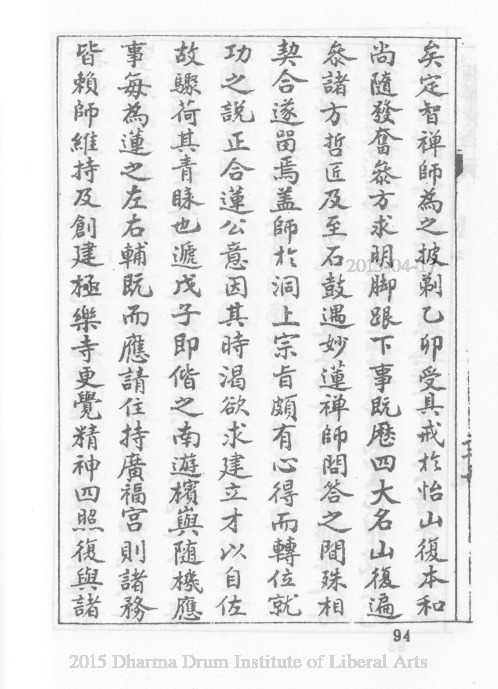 矣定智禪師為之披剃乙卯受具戒於怡山復本和
尚隨發奮叅方求明脚跟下事既歷四大名山復遍
叅諸方哲匠及至石鼓遇妙蓮禪師問答之間殊相
契合遂畱焉盖師於洞上宗旨頗有心得而轉位就
功之説正合蓮公意因其時渴欲求建立才以自佐
故驟荷其青睐也遞戊子即偕之南遊檳嶼随機應
事每為蓮之左右輔既而應請住持廣福宮則諸務
皆賴師維持及創建極樂寺更覺精神四照復與諸
94
2015-04-17
2015 Dharma Drum Institute of Liberal Arts